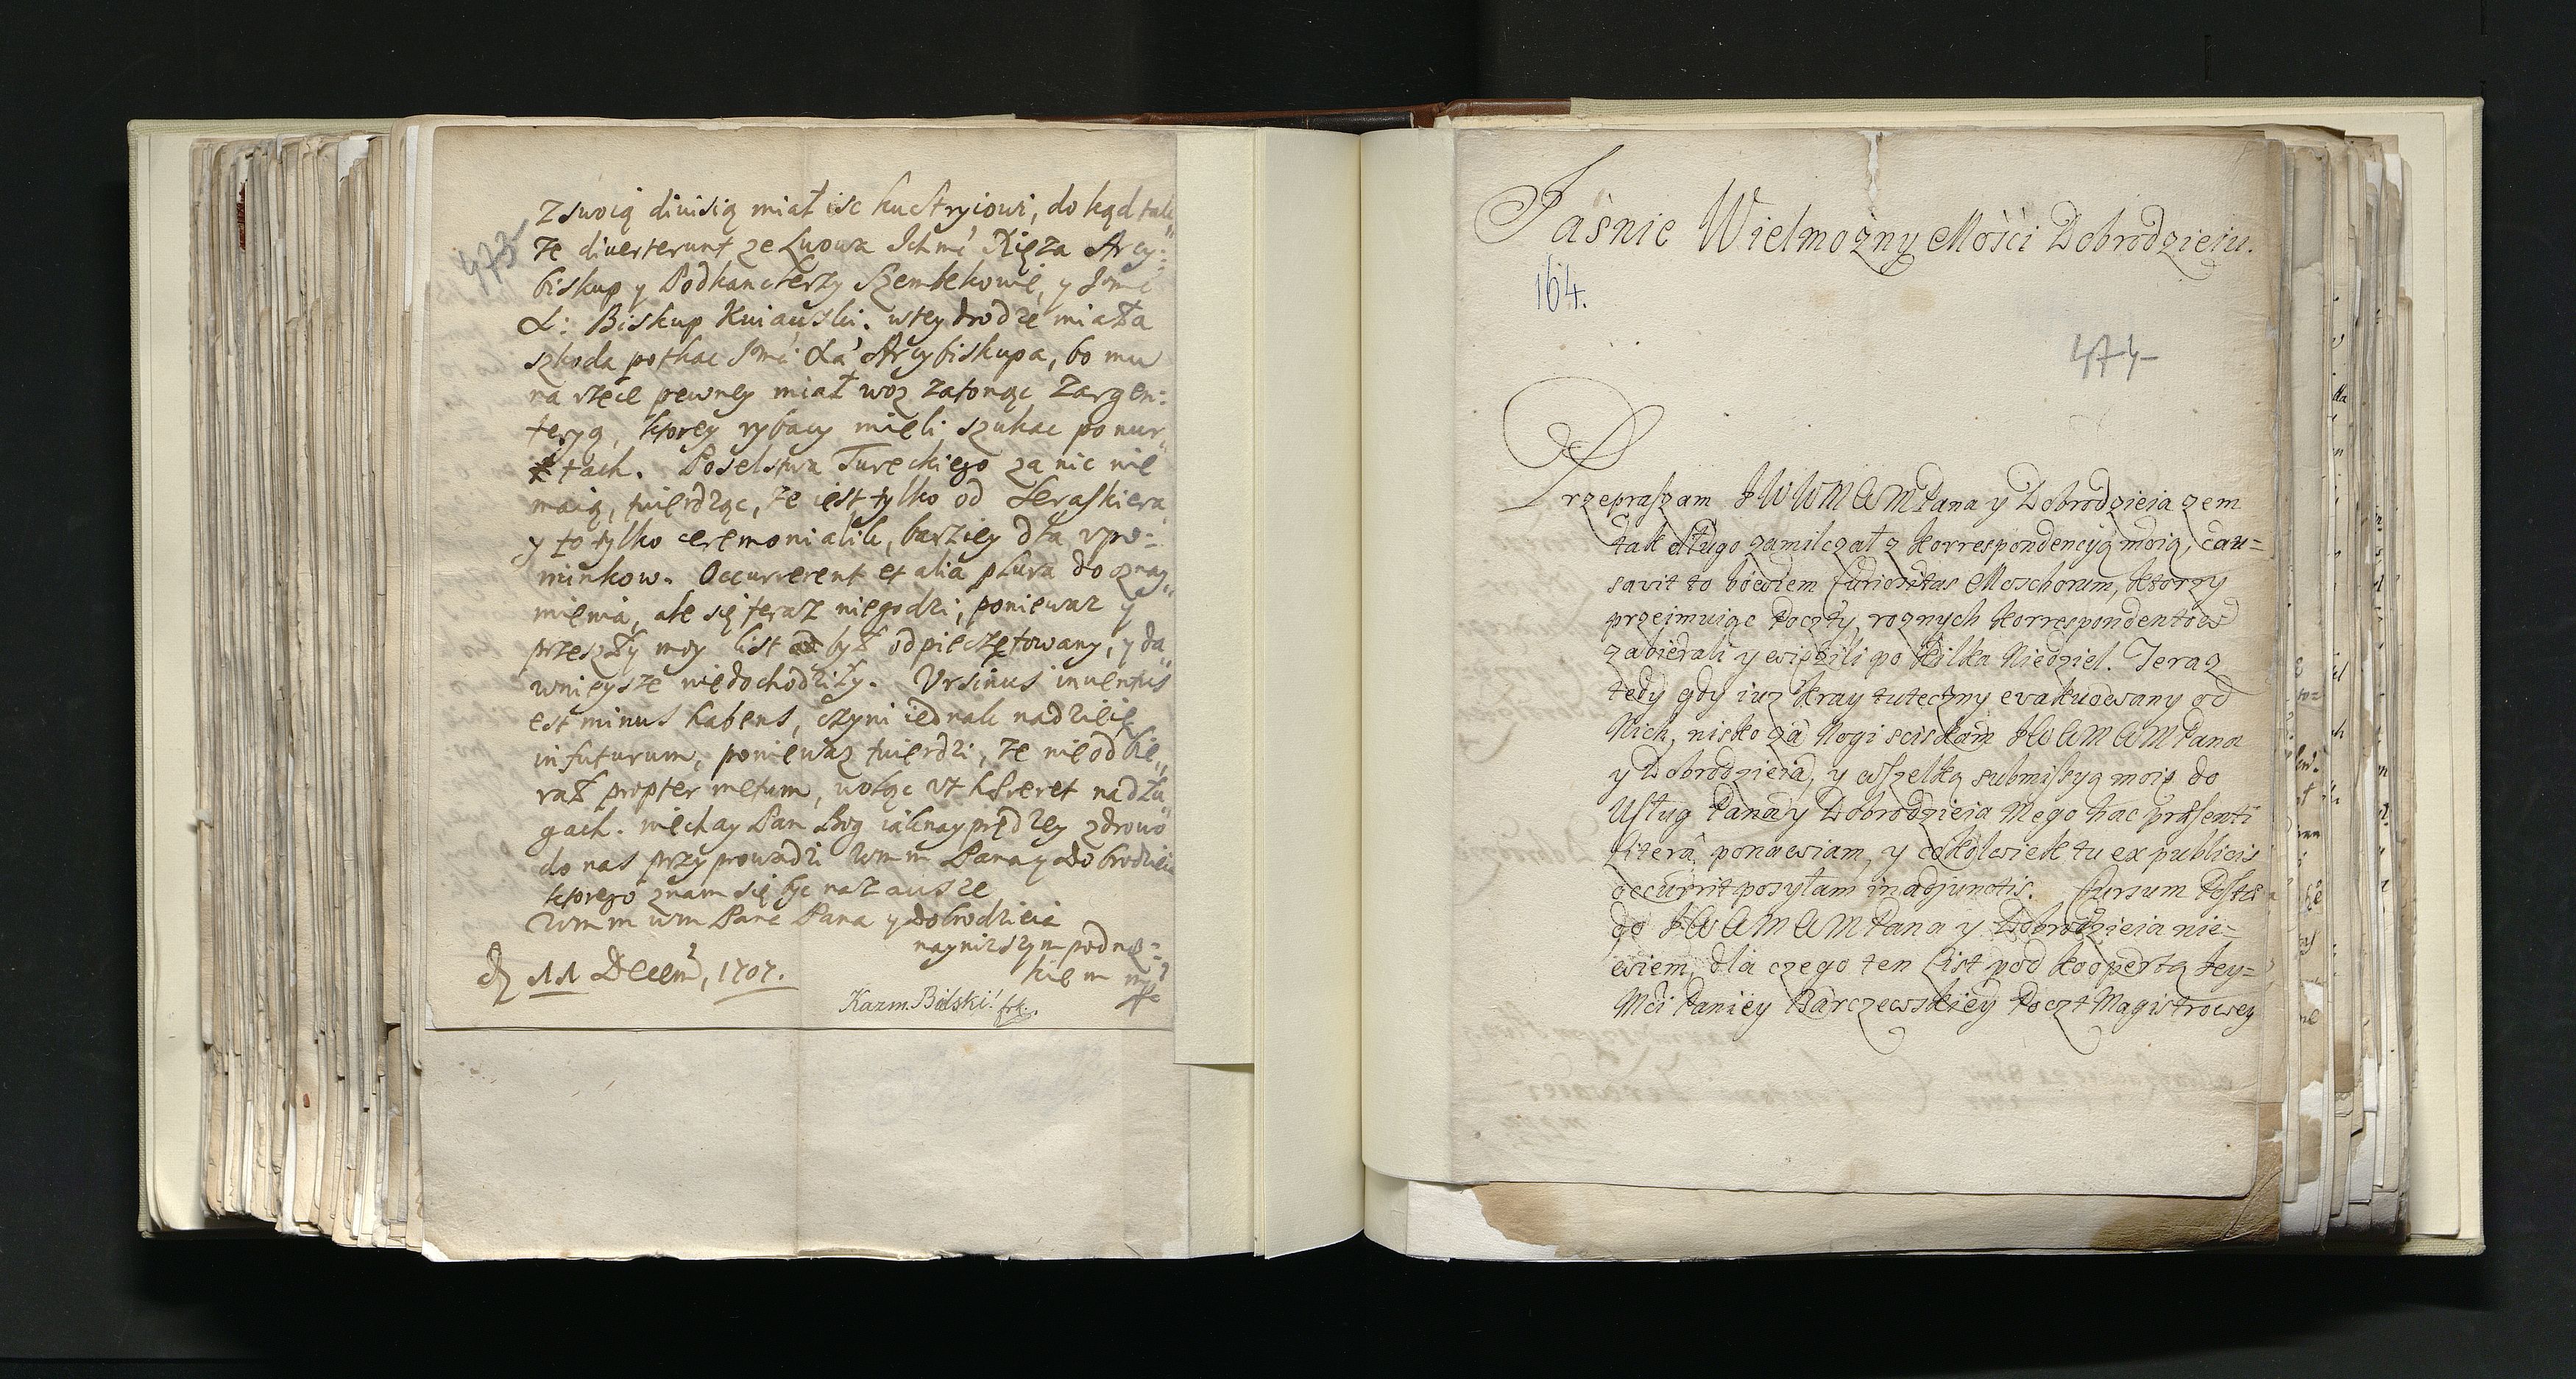 473
z swoią diuisią miał isc ku Stryiowi, do kąd tak„
że diuerterunt ze Lwowa Ichmć Xięża Arcy:
biskup y Podkanclerzy Szembekowie, y Jmć
X: Biskup Kuiauski. w tey drodze miała
szkoda potkac Jmći Xa' Arcybiskupa, bo mu
na rzece pewney miał woz zatonąc z argen:
teryą, ktorey rybacy mieli szukac po nur„
tach. Poselstwa Tureckiego za nic nie
maią, twierdząc, że iest tylko od Seraskiera
y to tylko ceremonialik, barziey dla vpo:
minkow. Occurrerent et alia plura do oznay„
mienia, ale się teraz niegodzi, poniewaz y
przeszły moy list był odpieczętowany, y da„
wnieysze niedochodziły. Vrsinus inuentus
est minus habens, czyni iednak nadzieię
in futurum, poniewaz twierdzi, że nie odbie„
rał propter metum, woląc vt hæreret na dłu„
gach. niechay Pan Bog iak nayprędzey zdrowo
do nas przyprowadzi Wmm Pana y Dobrodzieia
ktorego znam się byc na zausze
Wmm wm Pana Pana y Dobrodzieia
nayniższym podnoż:
kiem mp
D 11 Decem, 1707.
Kazm. Bielski
Jaśnie Wielmożny Mości Dobrodzieiu.
164.
474
Przepraszam JWWMWMPana y Dobrodzieia zem
tak długo zamilczał z korrespondencyą moią, cau=
savit to bowiem furiositas Moschorum, ktorzy
przeimuiąc poczty roznych korrespondentow
zabierali y więzili po kilka Niedziel. Teraz
tedy gdy iuz kray tuteczny evakuowany od
Nich, nisko za Nogi sciskam JWWMWMPana
y Dobrodzieia, y wszelką submissyą moię do
Usług Pana y Dobrodzieia Mego hac præsenti
literâ ponawiam, y cokolwiek tu ex publicis
occurrit posyłam in adjunctis. Cursum Postæ
do JWWMWMPana y Dobrodzieia nie=
wiem, dla czego ten list pod koopertą Jey=
Mći Paniey Barczewskiey PocztMagistrowey